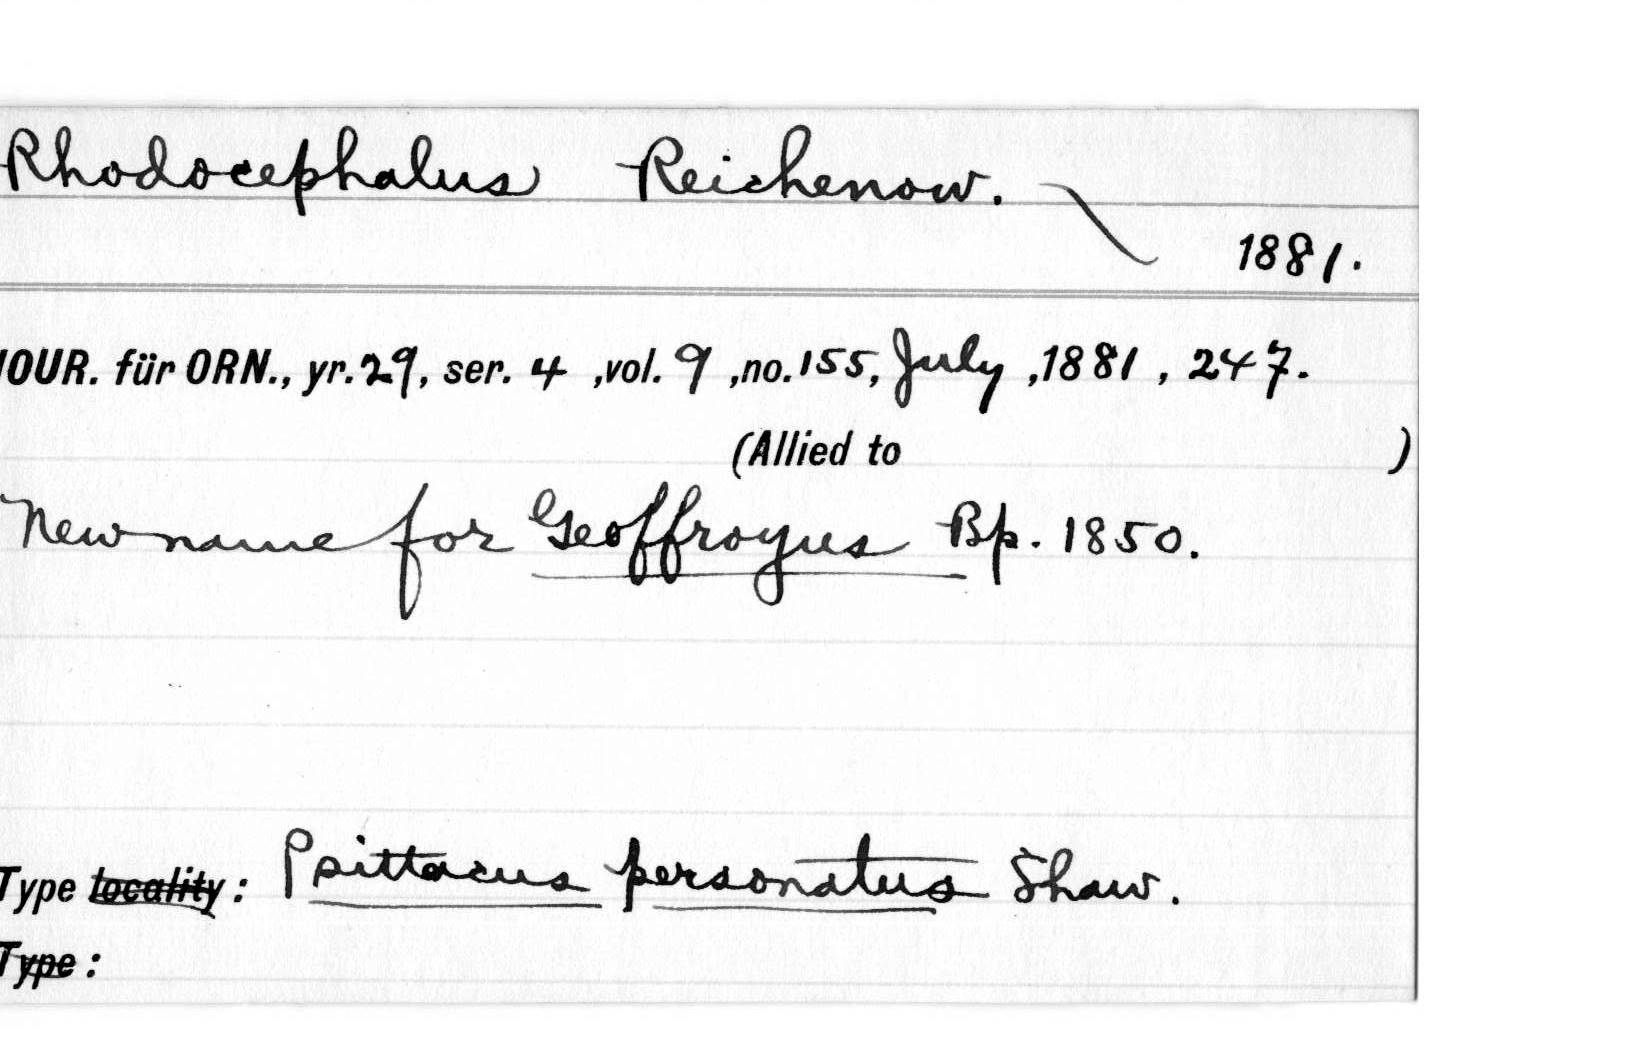 Rhodocephalus Reichenow.
1881.
JOUR. für ORN., yr. 29, ser. 4 ,vol. 9 ,no. 155, July ,1881 , 247.
(Allied to )
New name for Geoffroyus Bp. 1850.
Type locality : Psittacus personatus Shaw.
Type :